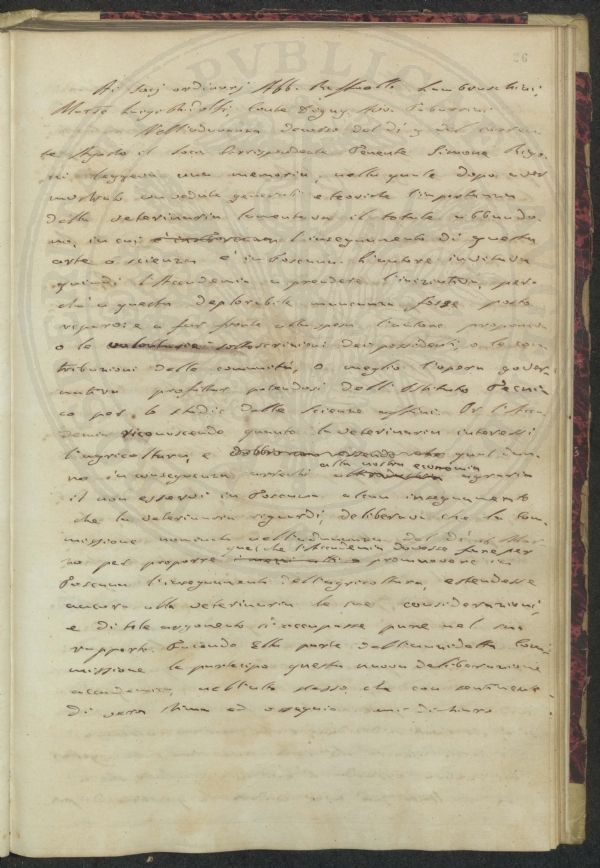 26
Ai Socj ordinarj Abb. Raffaello Lambruschini,
March. Luigi Ridolfi, Conte Digny, Avv.
Nell'adunanza decorso del dì 7 del corren-
te Agosto il Socio Corrispondente Tenente Simone
leggeva una memoria, nella quale dopo aver
mostrato con vedute generali e teoriche l'importanza
della veterinaria lamentava il totale abbando-
no, in cui l'insegnamento di questa
arte o scienza è in Toscana. L'autore invitava
quindi l'Accademia a prendere l'iniziativa, per-
chè a questa deplorabile mancanza fosse posto
riparo: e a far fronte alla spesa l'autore proponeva
o le volontarie sottoscrizioni dei possidenti, o le con-
tribuzioni delle comunità, o meglio l'opera gover-
nativa profittar potendosi dell'Istituto Tecni-
co per lo studio delle scienze affini. Or l'Acca-
demia riconoscendo quanto la veterinaria interessi
l'agricoltura, e qual dan-
no in conseguenza arrechi alla nostra economia agraria
il non esservi in Toscana alcun insegnamento
che la veterinaria riguardi, deliberava che la Com-
missione nominata nell'adunanza del dì
per proporre quel che l'Accademia dovesse fare per promuovere in
Toscana l'insegnamento dell'agricoltura, estendesse
ancora alla veterinaria le sue considerazioni,
e di tale argomento si occupasse pure nel suo
rapporto. Facendo Ella parte dell'anzidetta Com-
missione le partecipo questa nuova deliberazione
accademica, nell'atto stesso, che con sentimenti
di vera stima ed ossequio mi dichiaro